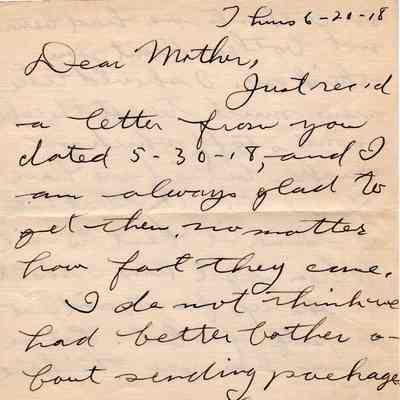 Thurs 6-20-18
Dear Mother,
Just rec'd
a letter from you
dated 5-30-18, and I
am always glad to
get them, no matter
how fast they come.
I do not think we
had better bother a-
bout sending packages